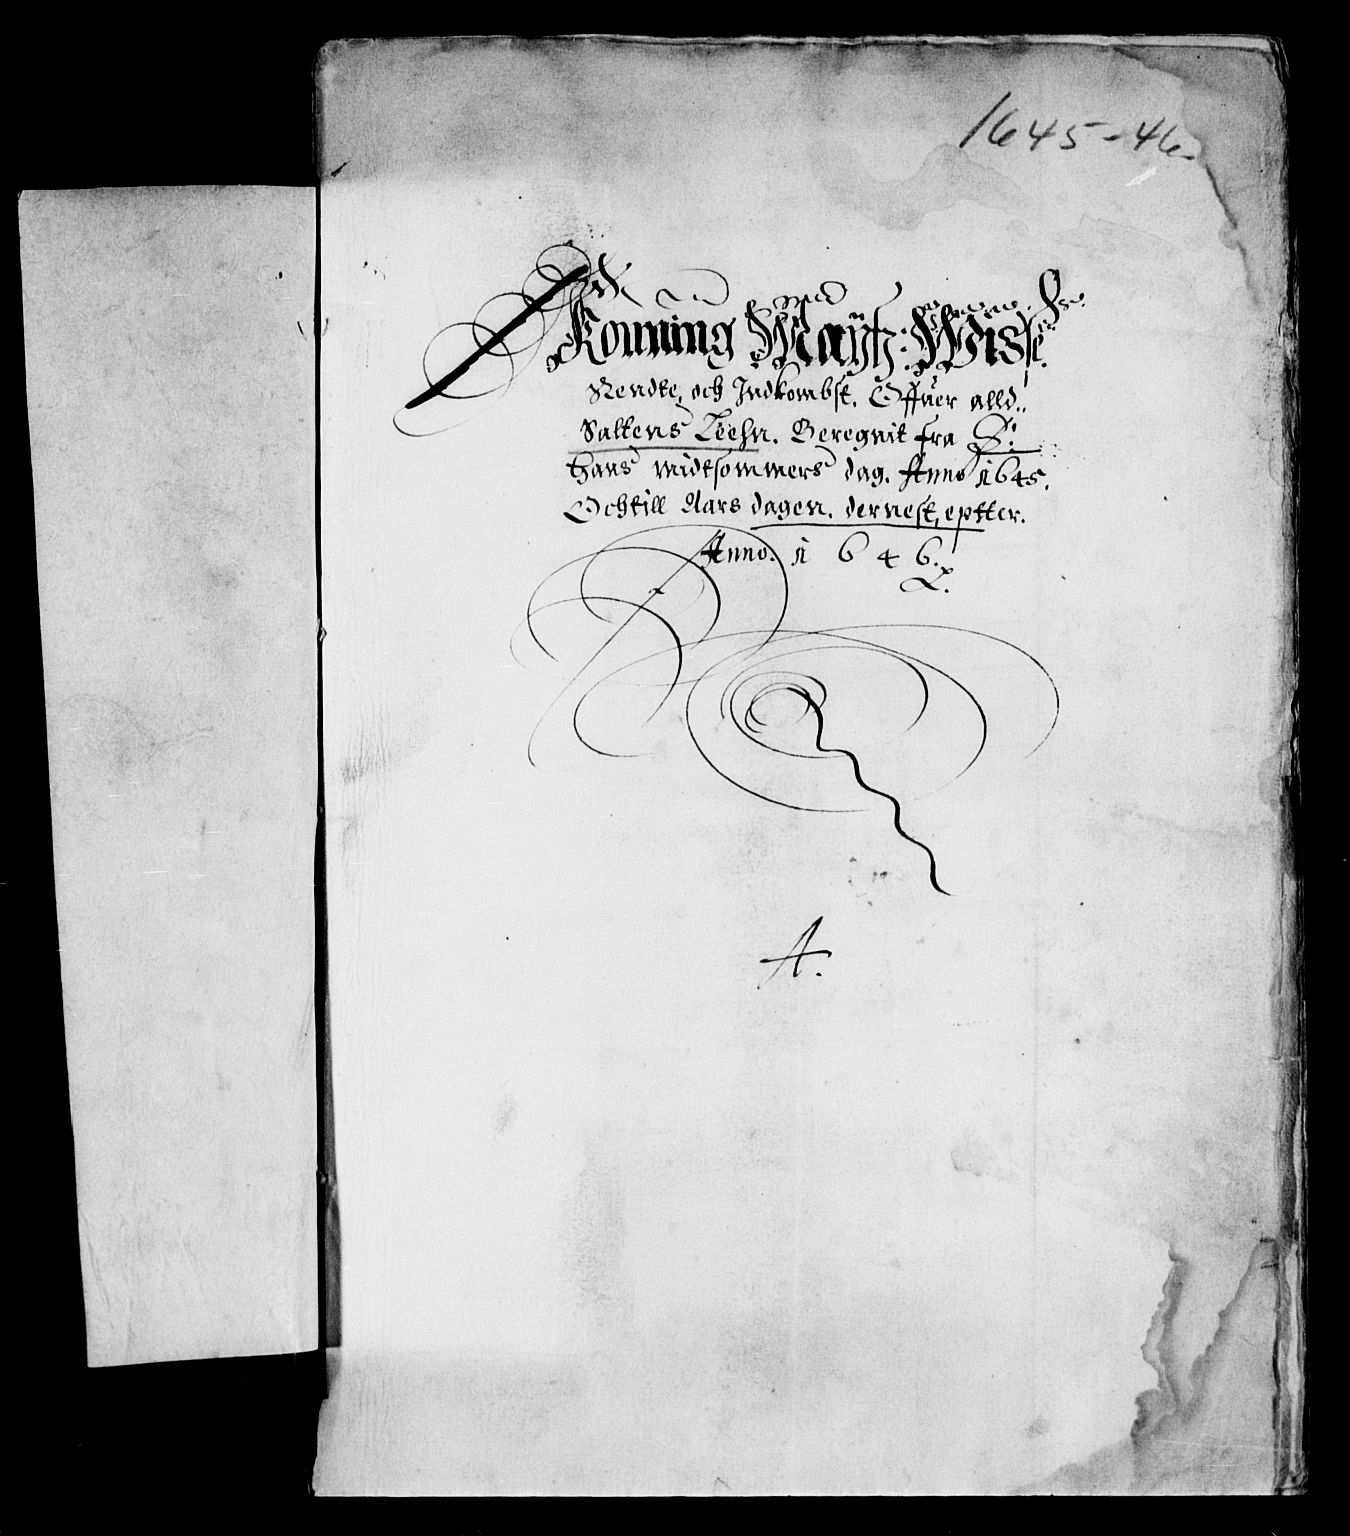 1645-46.
Konning Maÿtz: Wisse.
Rendte, och Indkombst. Offuer alld..
Saltens Leehn. Beregnit fra S:
Hans midtsommers dag. Anno 1645.
Och till Aars dagen. dernest, epter.
Anno. 1646.
A.